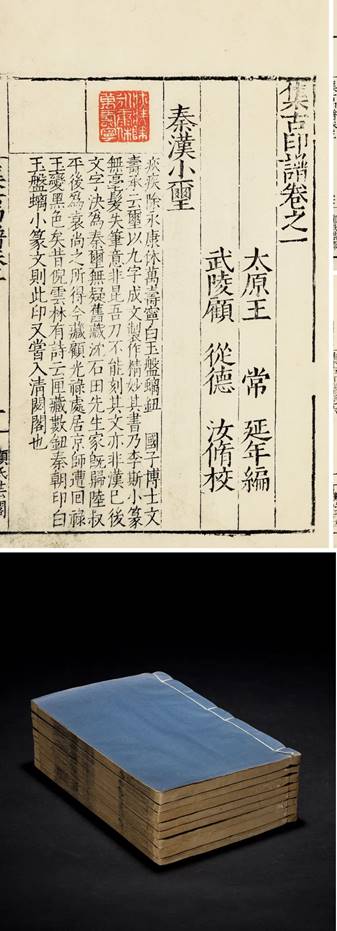 集古印譜卷之一
太原王 常 延年編
武陵顧 從德 汝脩校
秦漢小璽
疢疾除永康休萬壽寧
疢疾除永康休萬壽寧白玉盤螭鈕 國子博士文
壽承云璽以九字成文製作精妙其書乃李斯小篆
無毫髮失筆意非昆吾刀不能刻其文亦非漢已後
文字決為秦璽無疑舊藏沈石田先生家既歸陸叔
平後為袁尚之所得今藏顧光祿處居京師遭回祿
玉變黑色矣昔倪雲林有詩云匣藏數鈕秦朝印白
玉盤螭小篆文則此印又嘗入清閟閣也
顧氏芸閣